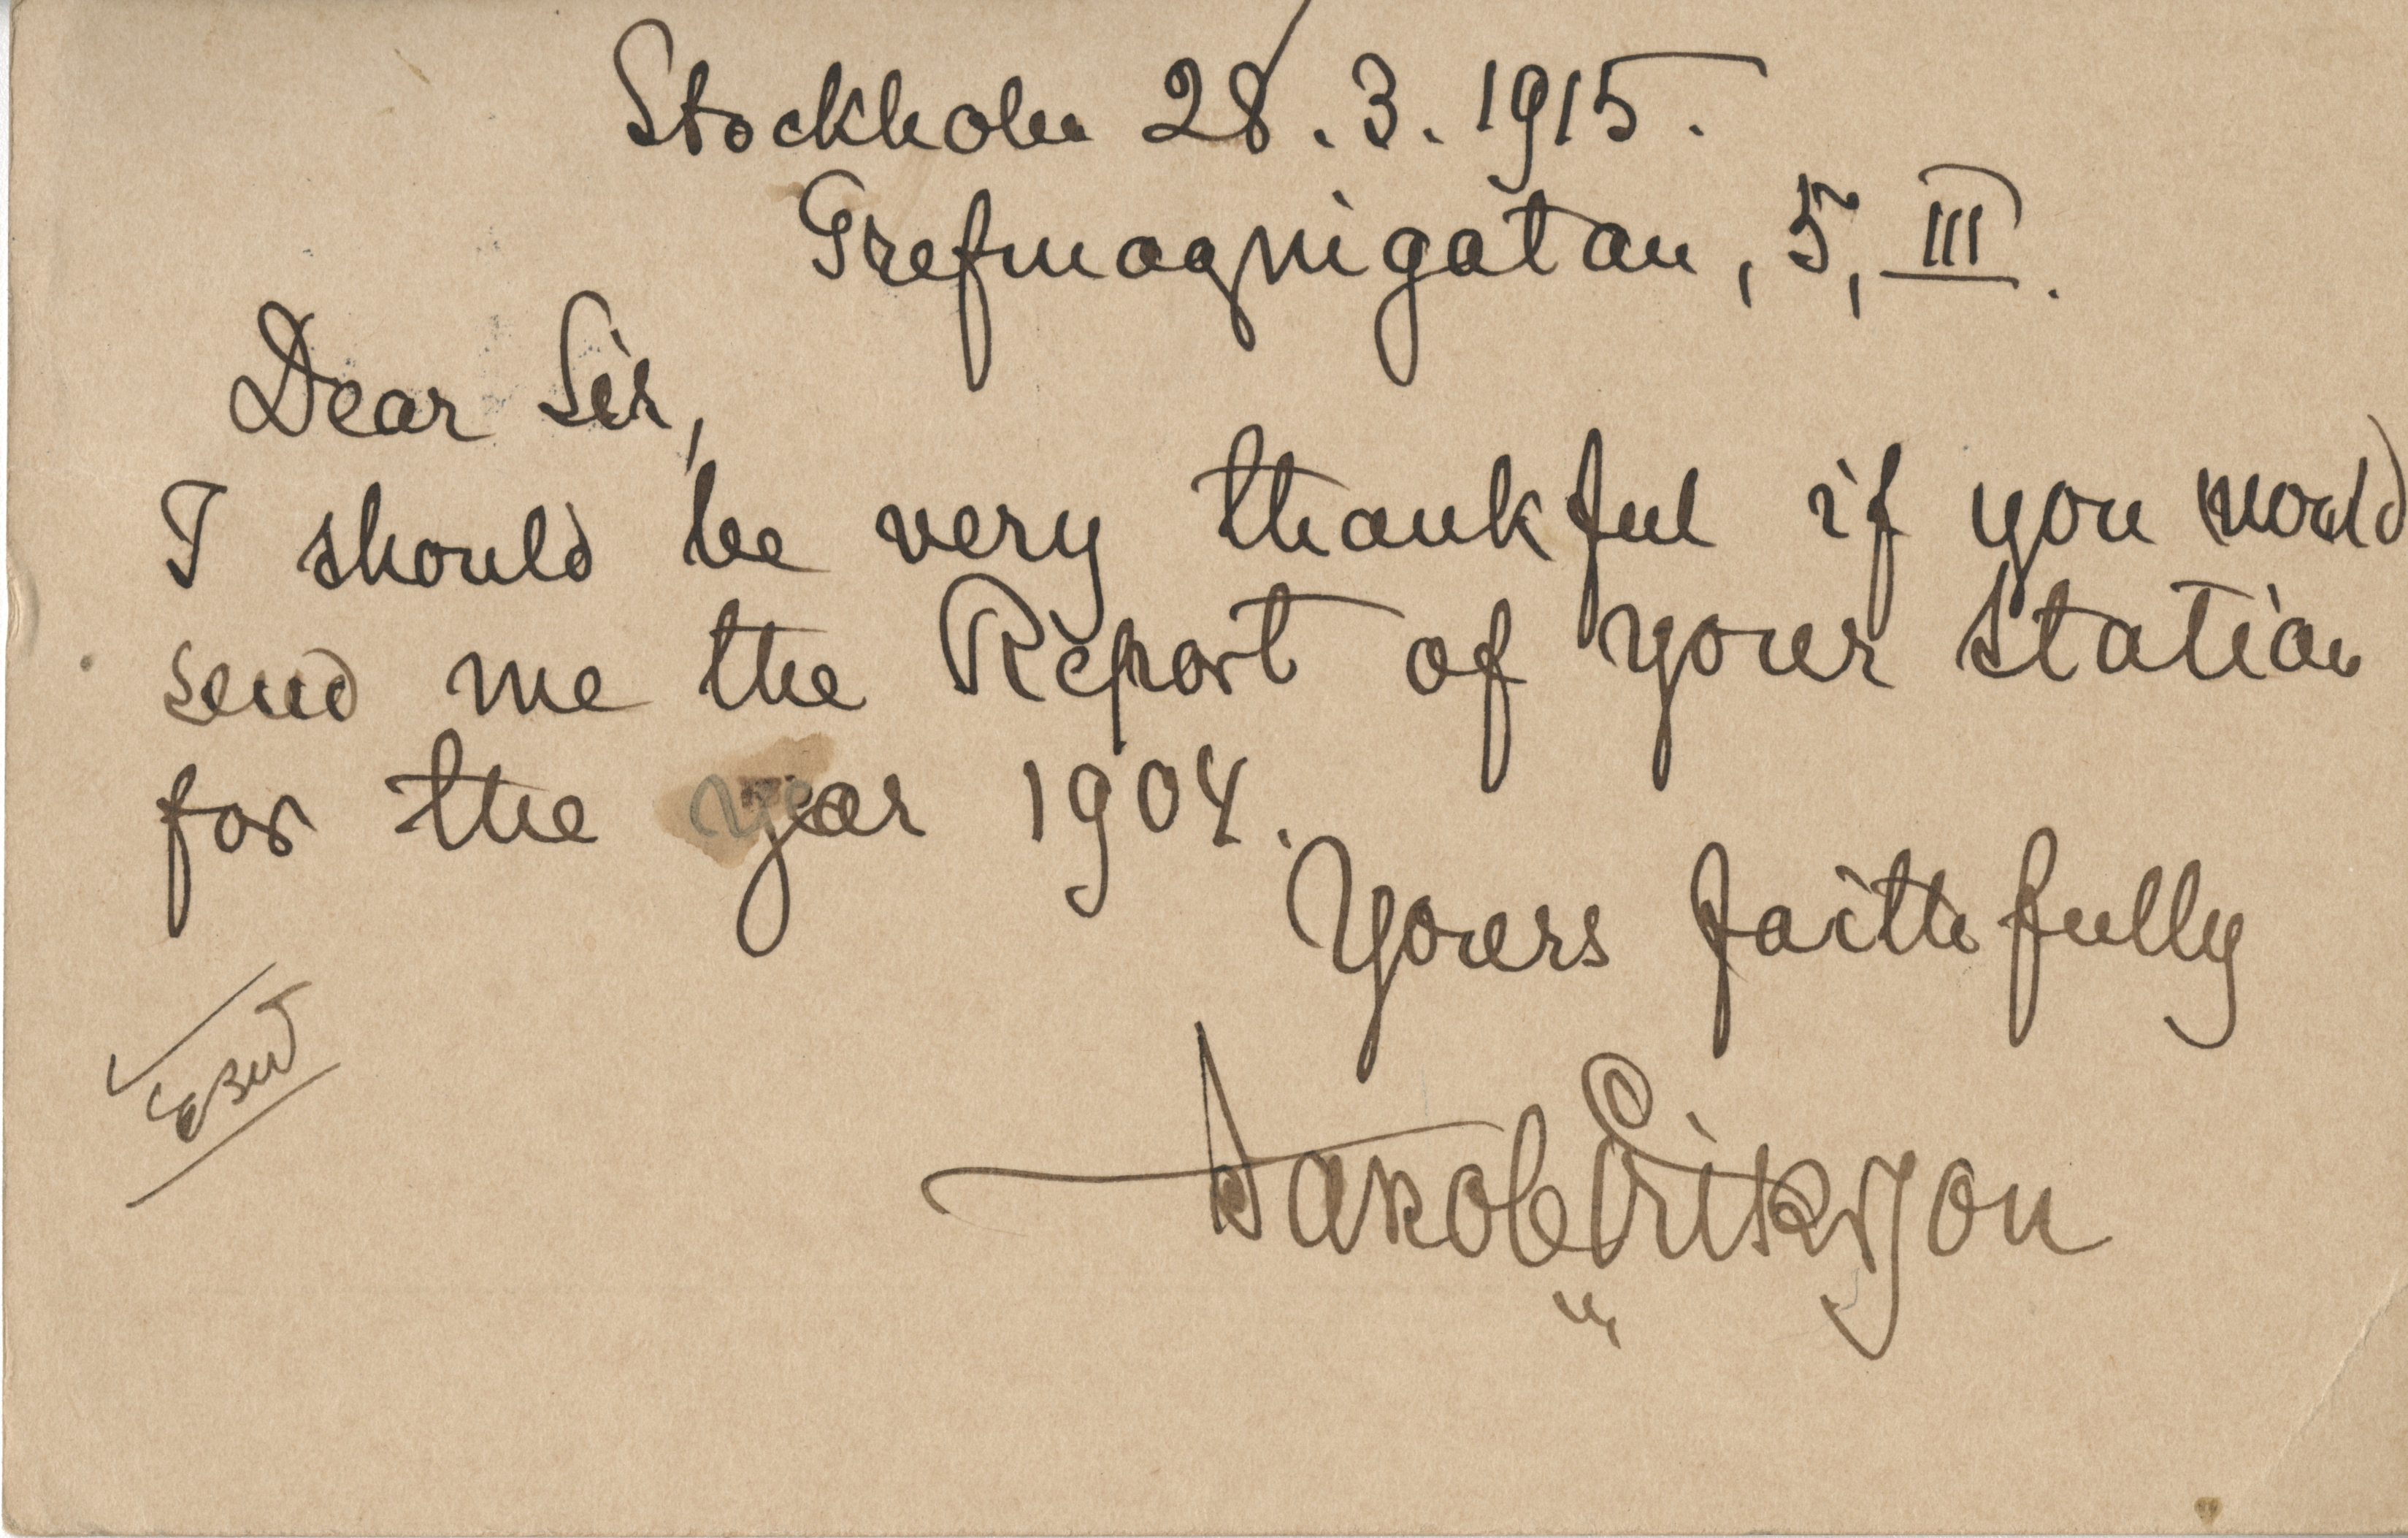 Stockholm 28.3.1915.
Grefmagnigatan, 5, III.
Dear Sir,
I should be very thankful if you would
send me the Report of your station
for the year 1904.
Yours faithfully
Jakob Eriksson